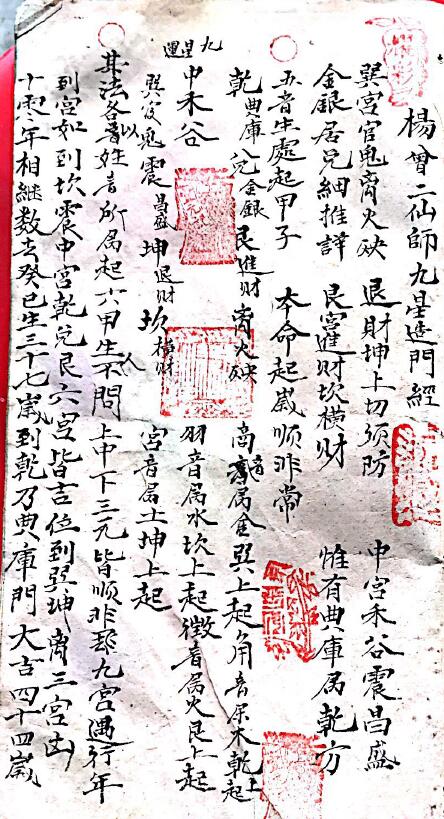 楊曾二仙師九星造門經
中宮禾谷震昌盛
退財坤上切須防
巽宮官鬼离火殃
惟有典庫属乾方
艮宮進財坎横財
金銀居兌細推詳
本命起歲順非常
五音生處起甲子
乾典庫 兌金銀 艮進財 离火殃
商音属金巽上起角音属木乾上起
九星運
中禾谷
羽音属水坎上起徵音属火艮上起
巽官鬼 震昌盛 坤退財 坎横財
宮音属土坤上起
其法各以音姓音所属起六甲生人不問上中下三元皆順非郘九宮遇行年
到宮如到坎震中宮乾兌艮六宮皆吉位到巽坤离三宮凶
十零年相継数去癸巳生三十七歲到乾乃典庫門大吉四十四歲